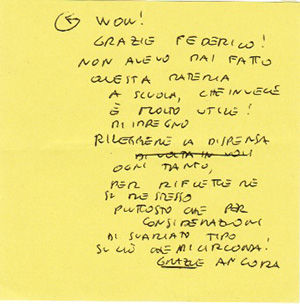 5 WOW!
GRAZIE FEDERICO!
NON AVEVO MAI FATTO
QUESTA MATERIA
A SCUOLA, CHE INVECE
È MOLTO UTILE!
MI IMPEGNO
RILEGGERE LA DISPENSA
DI VOLTA IN VOLT
OGNI TANTO,
PER RIFLETTERE
SU ME STESSO
PIUTTOSTO CHE PER
CONSIDERAZIONI
DI SVARIATO TIPO
SU CIÒ CHE MI CIRCONDA!
GRAZIE ANCORA